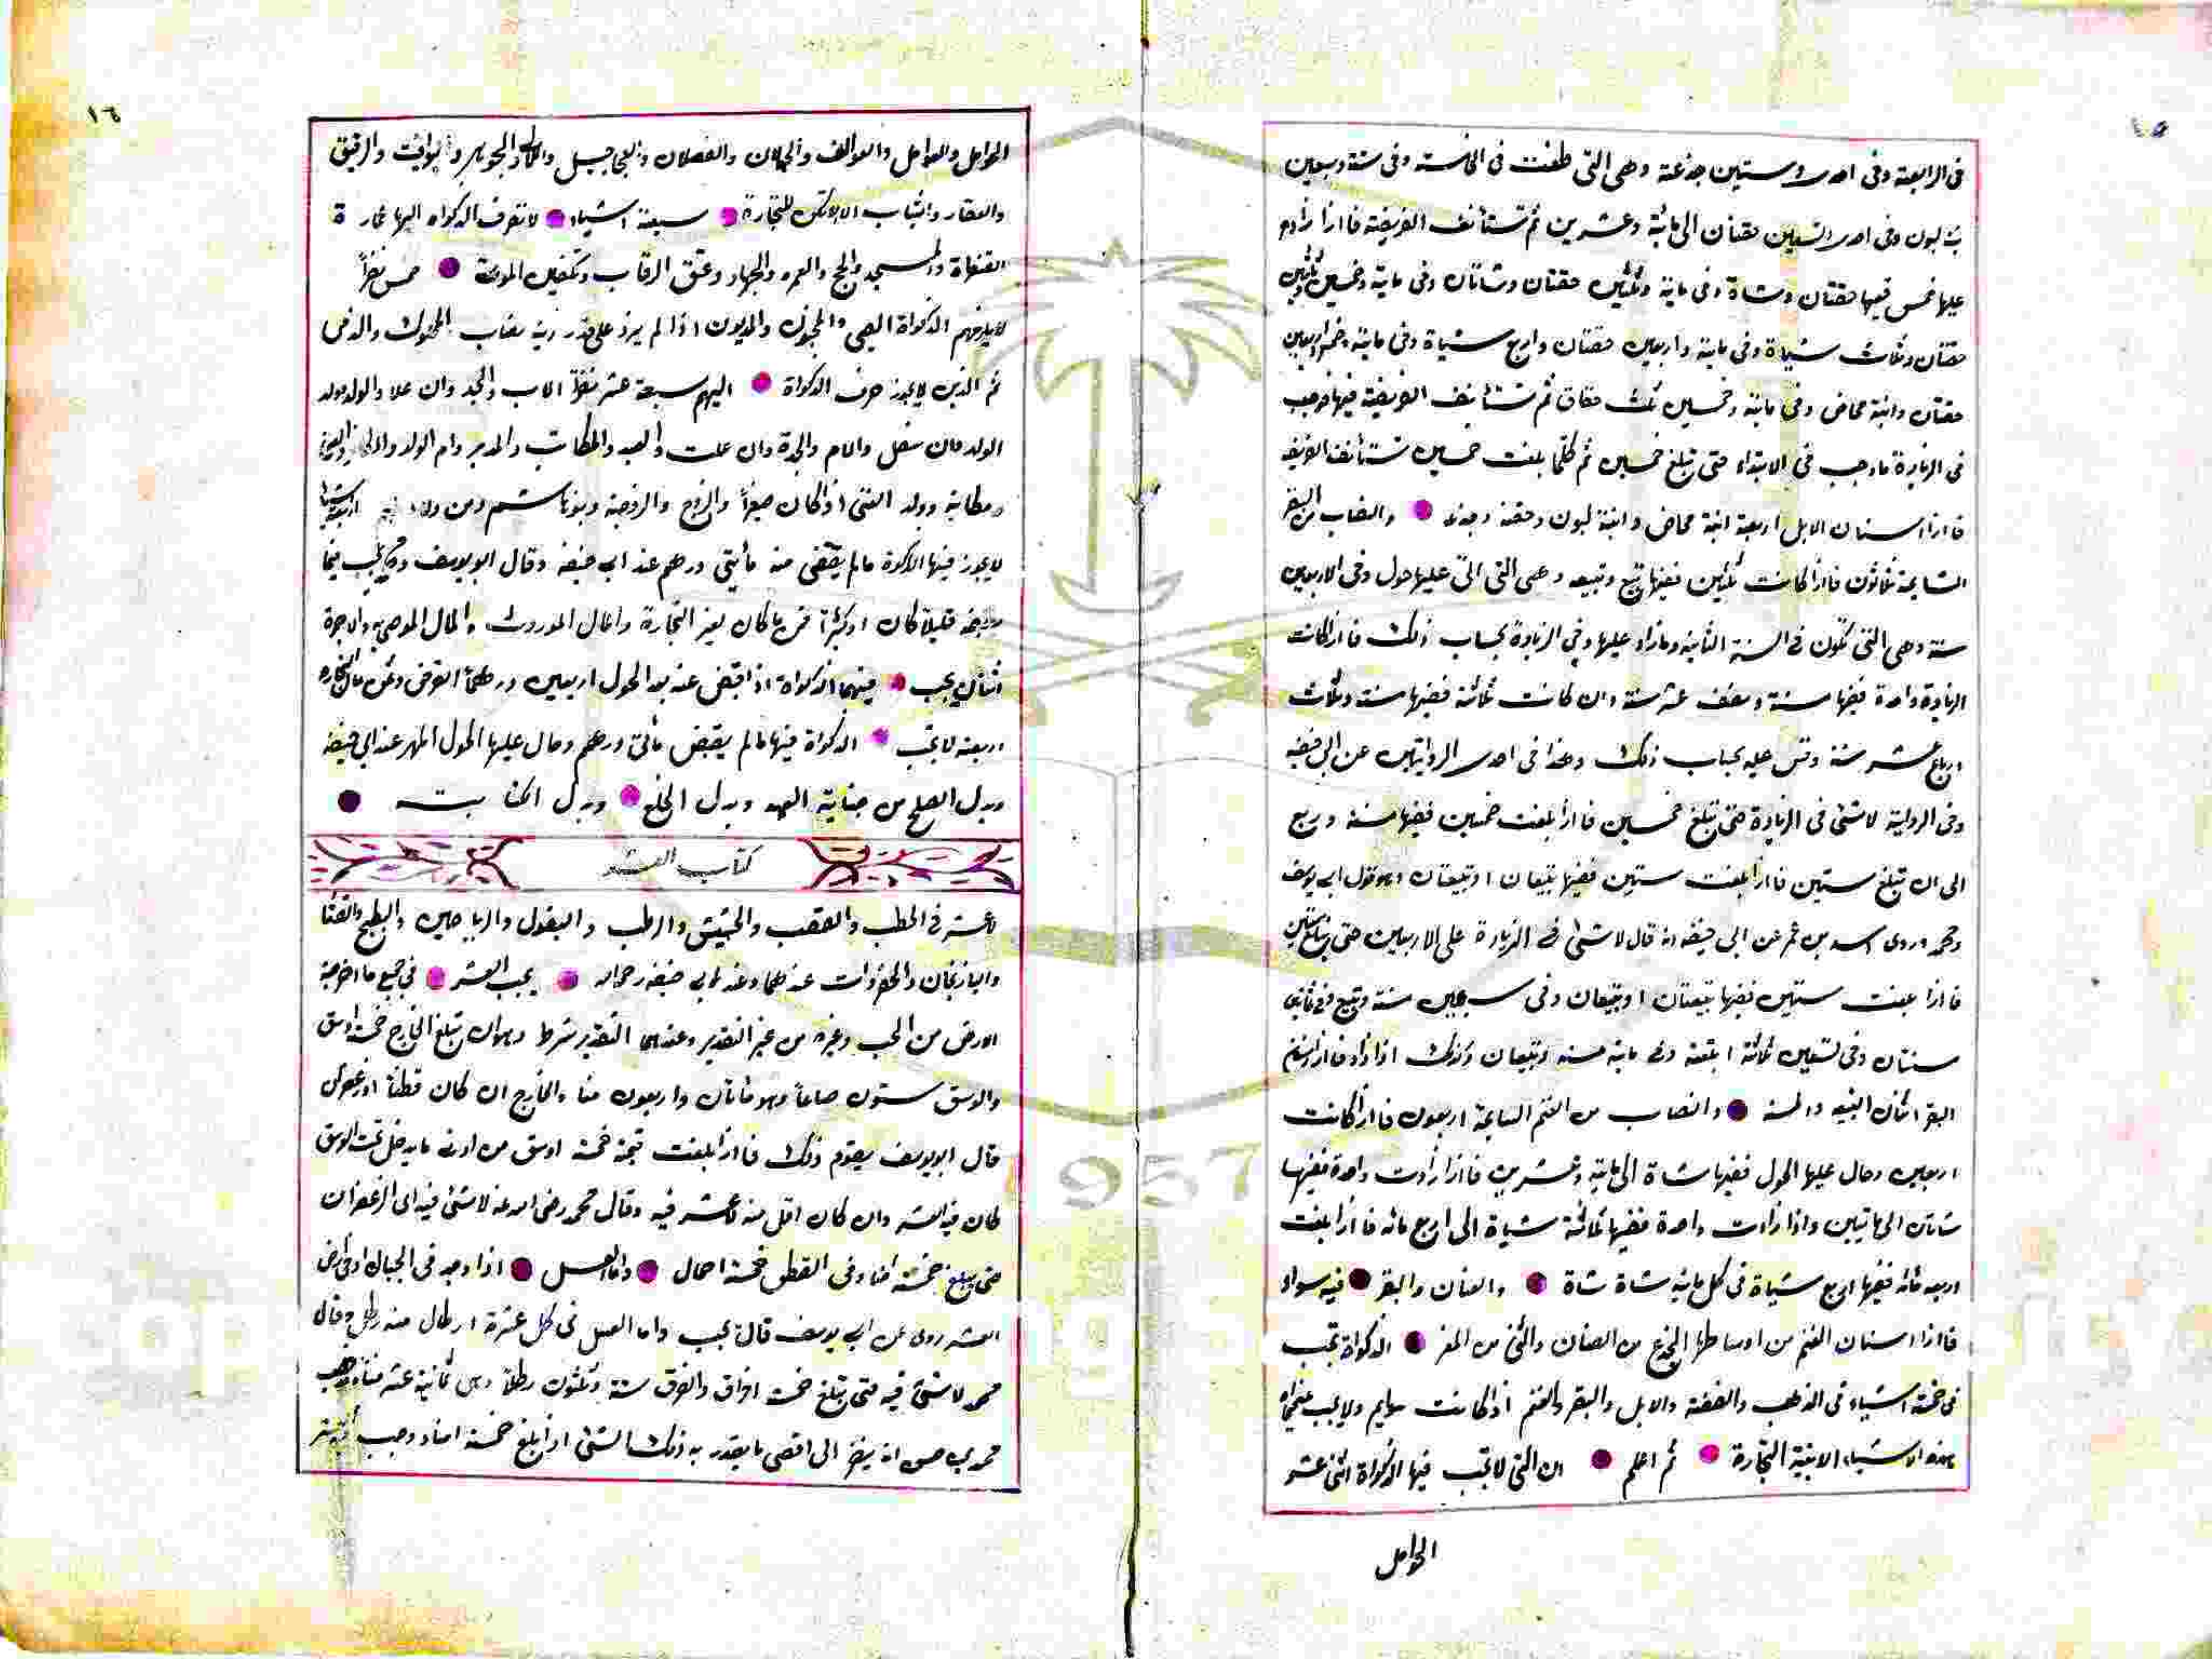 ١٥
في الرابعة وفي احدى وستين جذعة وهي التي طعنت في الخامسة وفي ستة وسبعين
بنتا لبون وفي احدى وتسعين حقتان الى مائة وعشرين ثم تستأنف الفريضة فاذا زاد
عليها خمس ففيها حقتان وشاة وفي ماية وثلثين حقتان وشاتان وفي ماية وخمس وثلثين
حقتان وثلاث شياة وفي ماية واربعين حقتان واربع شياة وفي ماية وخمس واربعين
حقتان وابنة مخاض وفي ماية وخمسين ثلث حقاق ثم تستأنف الفريضة فيها فيجب
في الزيادة ماوجب في الابتداء حتى تبلغ خمسين ثم كلما بلغت خمسين تستأنف الفريضة
فاذا اسنان الابل اربعة ابنة مخاض وابنة لبون وحقة وجذعة والنصاب من البقر
السايمة ثلاثون فاذا كانت ثلثين ففيها تبيع وتبيعه وهي التي اتى عليها حول وفي الاربعين
سنة وهي التي تكون في السنة الثانية ومازاد عليها وفي الزيادة بحساب ذلك فاذا كانت
الزيادة واحدة ففيها سنة ونصف عشر سنة وان كانت ثلاثة ففيها سنة وثلاث
ارباع عشر سنة وقس عليه بحساب ذلك وهذا في احدى الروايتين عن ابي حنيفة
وفي الرواية لاشئ في الزيادة حتى تبلغ خمسين فاذا بلغت خمسين ففيها مسنة وربع
الى ان تبلغ ستين فاذا بلغت ستين ففيها تبيعان او تبيعتان وهو قول ابي يوسف
ومحمد وروى اسد بن عمر عن ابي حنيفة انه قال لاشئ في الزيادة على الاربعين حتى تبلغ ستين
فاذا بلغت ستين ففيها تبيعتان او تبيعان وفي سبعين مسنة وتبيع وفي ثمانين
سنتان وفي تسعين ثلاثة ابتعة وفي ماية مسنة وتبيعان وكذلك اذا زاد فاذا اسنان
البقر اثنان التبيعه والمسنة والنصاب من الغنم السايمة اربعون فاذا كانت
اربعين وحال عليها الحول ففيها شاة الى ماية وعشرين فاذا زادت واحدة ففيها
شاتان الى مايتين واذا زادت واحدة ففيها ثلاثة شياة الى اربع مائه فاذا بلغت
اربعه مائه ففيها اربع شياة في كل مايه شاة شاة والضان والبقر فيه سواء
فاذا اسنان الغنم من اوساطها الجذع من الضان والثني من المعز الزكواة تجب
في خمسة اشياء في الذهب والفضة والابل والبقر والغنم اذا كانت سوايم ولا يجب بغير
هذه الاشياء الابنية التجارة ثم اعلم ان التي لاتجب فيها الزكواة اثنى عشر
الحوامل
١٦
الحوامل والعوامل والعوالف والحملان والفصلان والعجاجيل واللآلئ والجواهر واليواقيت والرقيق
والعقار والثياب الا لاتكن للتجارة سبعة اشياء لاتصرف الزكواة اليها عمارة
القنطرة والمسجد والحج والعمره والجهاد وعتق الرقاب وتكفين الموتى خمس نفراً
لايلزمهم الزكواة الصبي والمجنون والمديون اذا لم يزد على قدر دينه نصاب المملوك والذمى
ثم الذين لايجوز صرف الزكواة اليهم سبعة عشر نفراً الاب والجد وان علا والولد وولد
الولد وان سفل والام والجدة وان علت والعبد والمكاتب والمدبر وام الولد والكافر والغني
ومكاتبه وولد الغني اذا كان صغيراً والزوج والزوجة وبنو هاشم ومن ولاه اربعة اشياء
لايجوز فيها الزكوة مالم يقتضى منه مأيتى درهم عند ابي حنيفه وقال ابو يوسف ومحمد يجب فيما
قليلا كان او كثيرا ثمن ماكان لغير التجارة والمال الموروث والمال الموصى به والاجرة
اثنان يجب فيهما الزكواة اذا قبض عنه بعد الحول اربعين درهماً القرض وثمن مال التجاره
اربعة لاتجب الزكواة فيها مالم يقبض مائتى درهم وحال عليها الحول المهر عند ابي حنيفه
وبدل الصلح من جناية العمد وبدل الخلع وبدل الكتابت
كتاب العشر
لاعشر في الحطب والقصب والحشيش والرطب والبقول والرياحين والبطيخ والقثا
والباذنجان والخضروات عندهما وعند ابي حنيفه رحمه الله يجب العشر في جميع ما اخرجته
الارض من الحب وغيره من غير التقدير وعندهما التقدير شرط وهو ان تبلغ الخارج خمسة اوسق
والوسق ستون صاعاً وهو مائتان واربعون منا والخارج ان كان قطناً او زعفران
قال ابو يوسف يقوم ذلك فاذا بلغت قيمة خمسة اوسق من ادنى مايدخل تحت الوسق
كان فيه العشر وان كان اقل منه لاعشر فيه وقال محمد رضى الله عنه لاشئ فيه اى الزعفران
حتى يبلغ خمسة امنا وفى القطن خمسة احمال واما العسل اذا وجد فى الجبال او فى ارض
العشر روى عن ابي يوسف قال يجب واما العسل في كل عشرة ارطال منه رطل وقال
محمد لاشئ فيه حتى تبلغ خمسة افراق والفرق ستة وثلثون رطلاً وهى ثمانية عشر مناً
محمد الى اقصى مايقدر به ذلك الشئ اذا بلغ خمسة امناء وجب